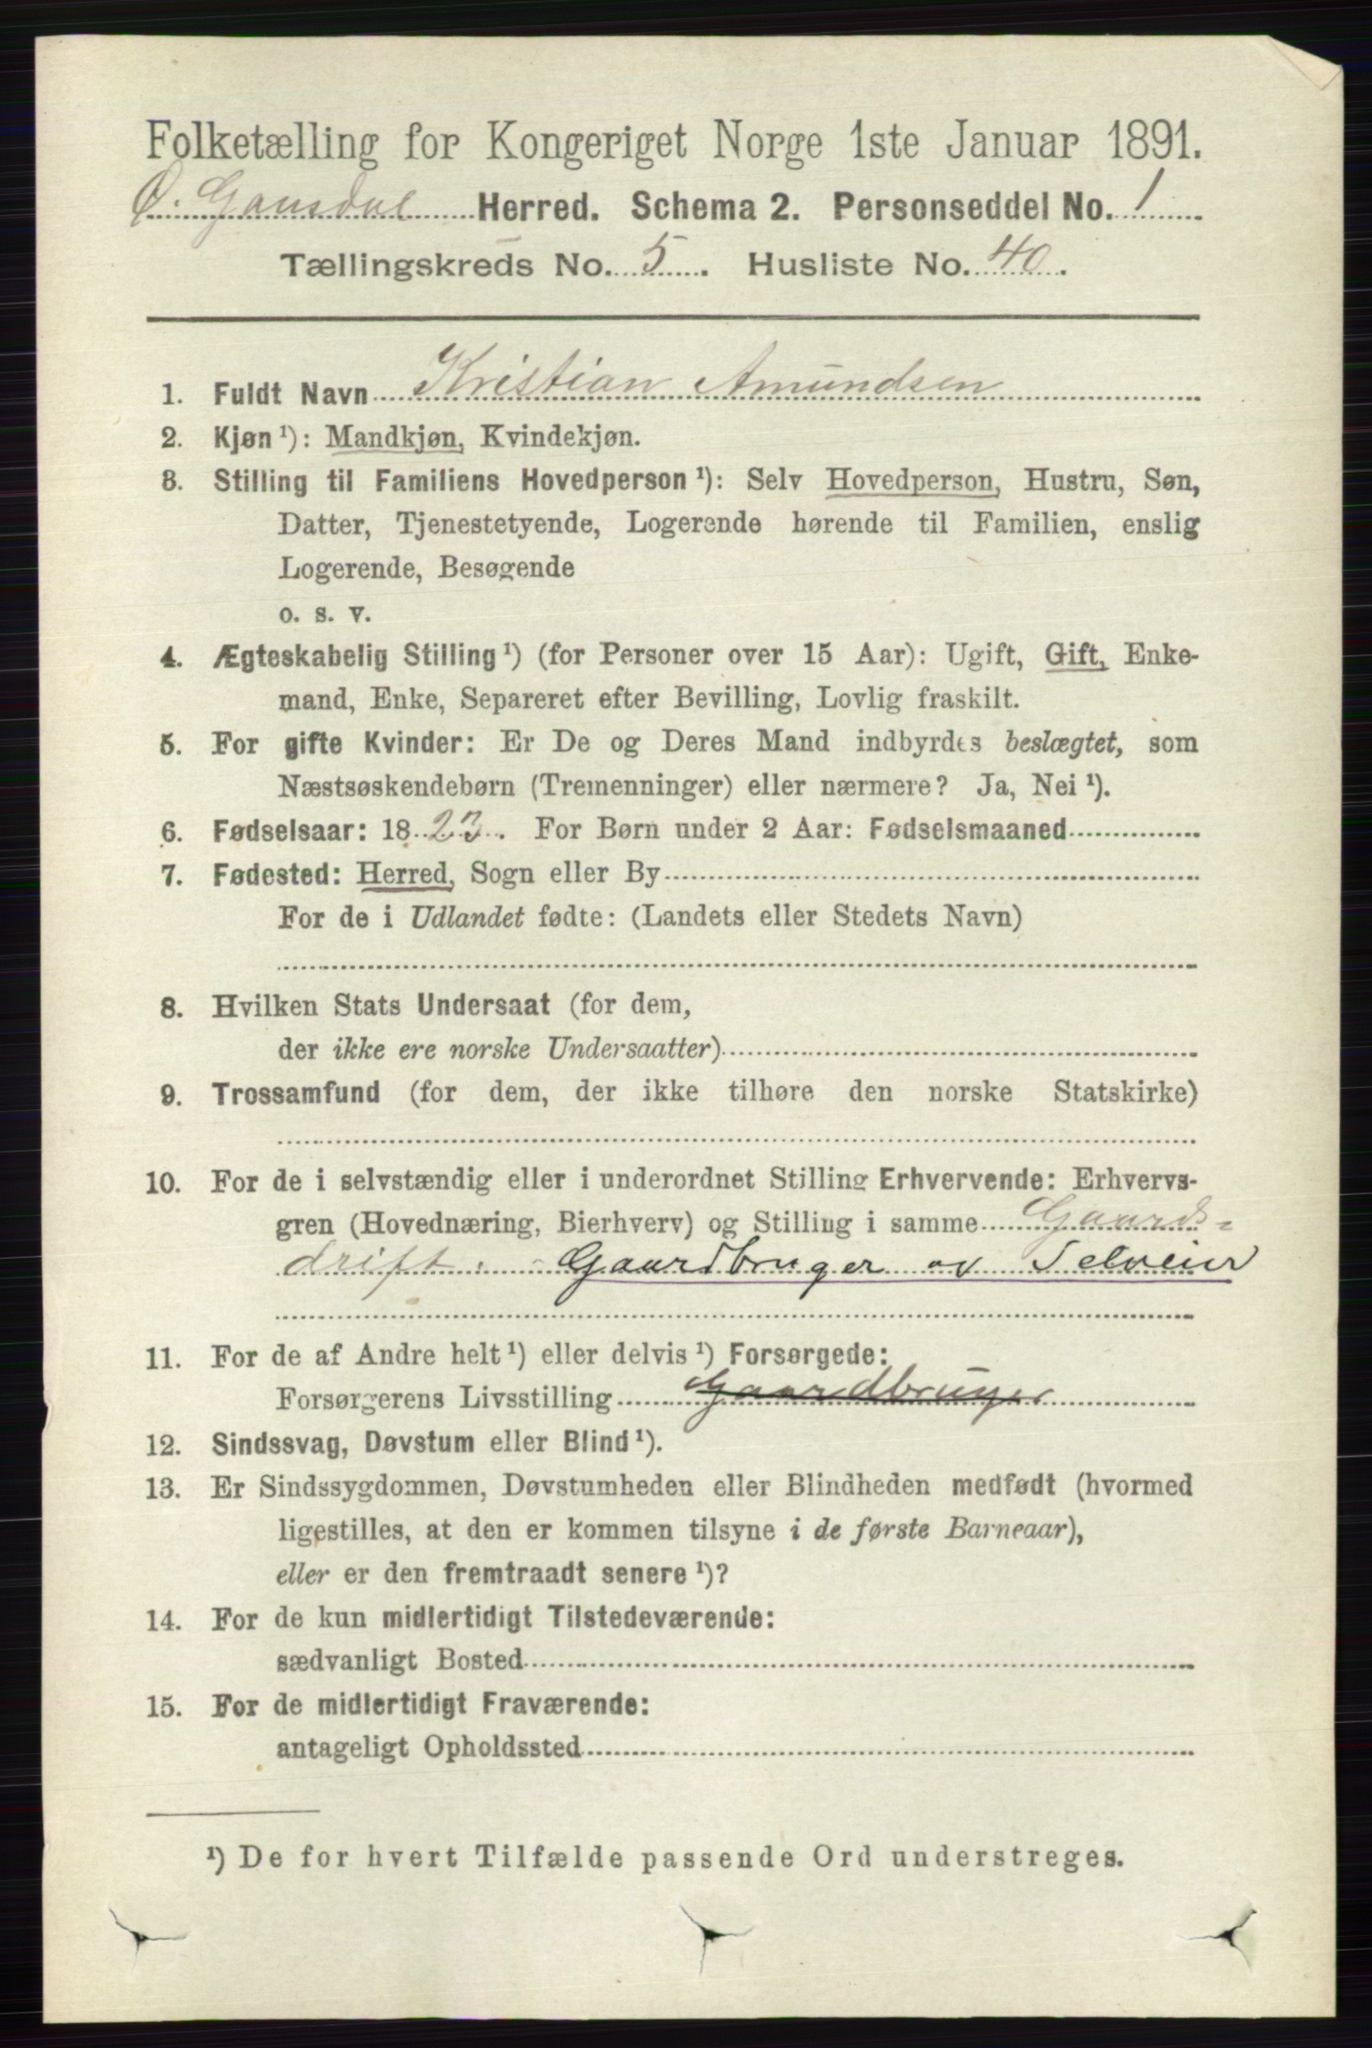 Folketælling for Kongeriget Norge 1ste Januar 1891.
Ø. Gausdal Herred. Schema 2. Personseddel No. 1
Tællingskreds No. 5. Husliste No. 40.
1. Fuldt Navn Kristian Amundsen
2. Kjøn ¹): Mandkjøn, Kvindekjøn.
3. Stilling til Familiens Hovedperson ¹): Selv Hovedperson, Hustru, Søn,
Datter, Tjenestetyende, Logerende hørende til Familien, enslig
Logerende, Besøgende
o. s. v.
4. Ægteskabelig Stilling ¹) (for Personer over 15 Aar): Ugift, Gift, Enke-
mand, Enke, Separeret efter Bevilling, Lovlig fraskilt.
5. For gifte Kvinder: Er De og Deres Mand indbyrdes beslægtet, som
Næstsøskendebørn (Tremenninger) eller nærmere? Ja, Nei ¹).
6. Fødselsaar: 18 23. For Børn under 2 Aar: Fødselsmaaned
7. Fødested: Herred, Sogn eller By
For de i Udlandet fødte: (Landets eller Stedets Navn)
8. Hvilken Stats Undersaat (for dem,
der ikke ere norske Undersaatter)
9. Trossamfund (for dem, der ikke tilhøre den norske Statskirke)
10. For de i selvstændig eller i underordnet Stilling Erhvervende: Erhvervs-
gren (Hovednæring, Bierhverv) og Stilling i samme Gaards-
drift. Gaardbruger og Selveier
11. For de af Andre helt ¹) eller delvis ¹) Forsørgede:
Forsørgerens Livsstilling Gaardbruger
12. Sindssvag, Døvstum eller Blind ¹).
13. Er Sindssygdommen, Døvstumheden eller Blindheden medfødt (hvormed
ligestilles, at den er kommen tilsyne i de første Barneaar),
eller er den fremtraadt senere ¹)?
14. For de kun midlertidigt Tilstedeværende:
sædvanligt Bosted
15. For de midlertidigt Fraværende:
antageligt Opholdssted
¹) De for hvert Tilfælde passende Ord understreges.